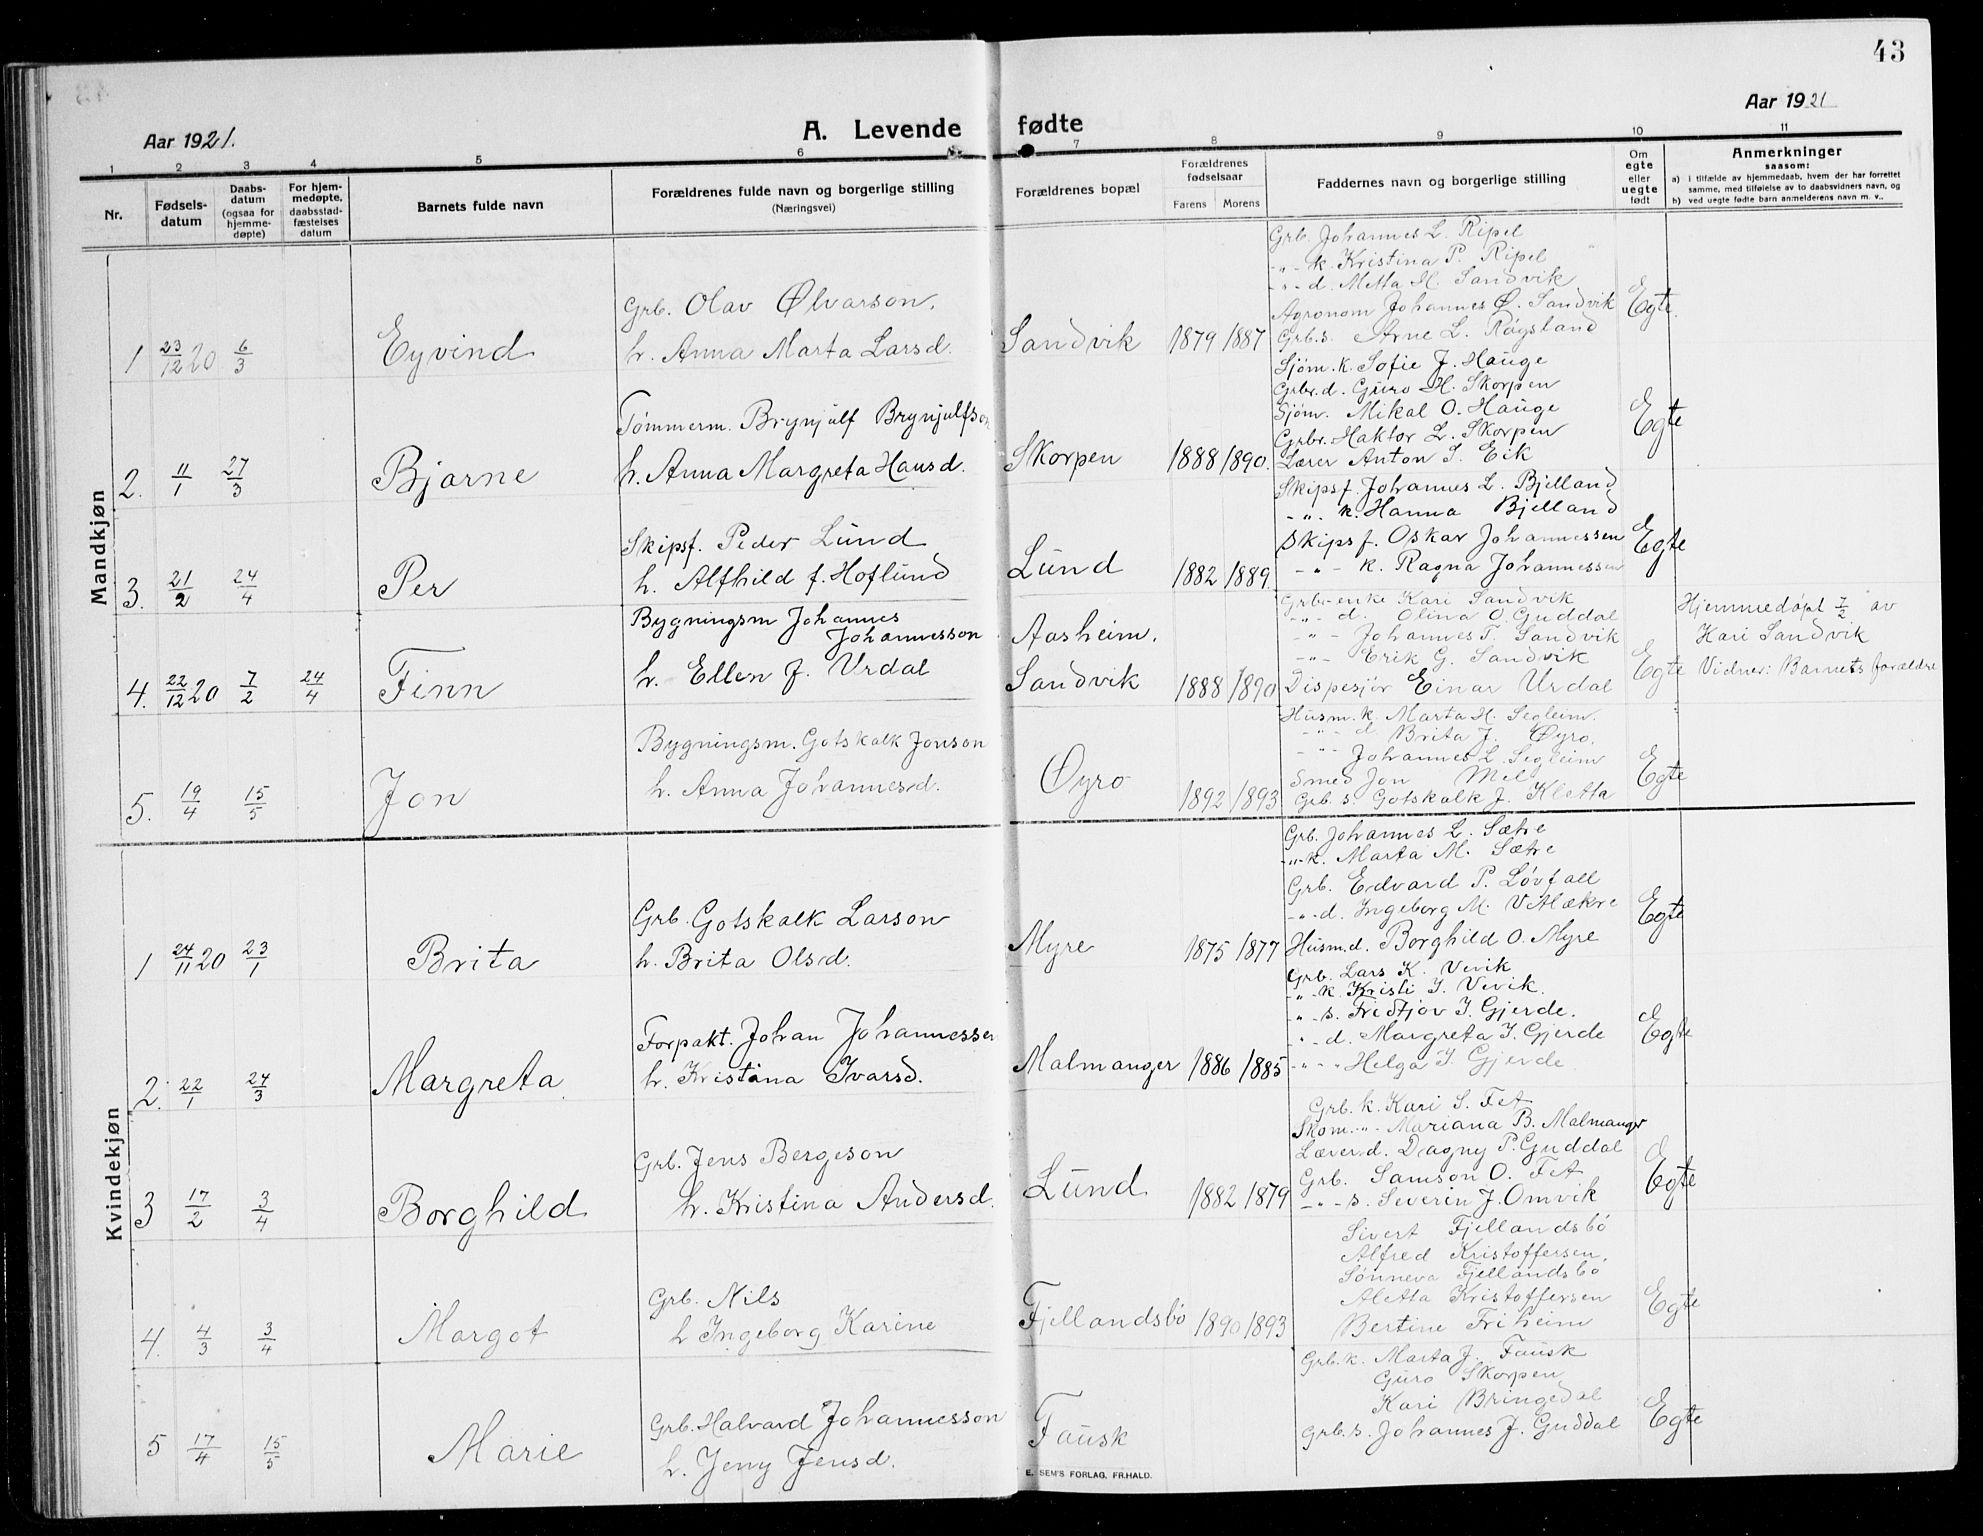 43
Aar 1921.
A. Levende fødte
Aar 1921
1 2 3 4 5 6 7 8 9 10 11
Nr.
Fødsels-
datum
Daabs-
datum
(ogsaa for
hjemme-
døpte)
For hjem-
medøpte,
daabsstad-
fæstelses
datum
Barnets fulde navn
Forældrenes fulde navn og borgerlige stilling
(Næringsvei)
Forældrenes bopæl
Forældrenes
fødselsaar
Farens Morens
Faddernes navn og borgerlige stilling
Om
egte
eller
uegte
født
Anmerkninger
saasom:
a) i tilfælde av hjemmedaab, hvem der har forrettet
samme, med tilføielse av to daabsvidners navn, og
b) ved uegte fødte barn anmelderens navn m. v..
Mandkjøn
1 23/12 20 6/3 Eyvind
Grb. Olav Ølvarson.
h. Anna Marta Larsd.
Sandvik 1879 1887
Grb. Johannes L. Ripel
-"- k. Kristina P. Ripel
-"- d. Metta H. Sandvik
Agronom Johannes Ø. Sandvik
Grb.s. Arne L. Røgsland
Egte.
2. 11/1 27/3 Bjarne
Tømmerm. Brynjulf Brynjulfson
h. Anna Margreta Hansd.
Skorpen 1888 1890.
Sjøm. k. Sofie J. Hauge
Grbr. d. Guro H. Skorpen
Sjøm. Mikal O. Hauge
Grbr. Haktor L. Skorpen
Lærer Anton S. Eik
Egte
3. 21/2 24/4 Per
Skipsf. Peder Lund
h. Alfhild f. Hoflund
Lund 1882 1889.
Skipsf. Johannes L. Bjelland
-"- k. Hanna Bjelland
Skipsf. Oskar Johannessen
-"- k. Ragna Johannessen
Egte
4. 22/12 20 7/2 24/4 Finn
Bygningsm Johannes
Johannesson
h. Ellen f. Urdal
Aasheim.
Sandvik 1888 1890
Grbr-enke Kari Sandvik
-"- d. Olina O. Guddal
-"- Johannes T. Sandvik
-"- Erik G. Sandvik
Dispesjør Einar Urdal
Egte
Hjemmedøpt 7/2 av
Kari Sandvik
Vidner: Barnets forældre
5. 19/4 15/5 Jon
Bygningsm. Gotskalk Jonson
h. Anna Johannesd.
Øyro 1892 1893
Husm. k. Marta H. Segleim.
-"- d. Brita J. Øyro.
-"- Johannes L. Segleim
Smed Jon Mel
Grb. s. Gotskalk J. Kletta
Egte
Kvindekjøn
1 24/11 20 23/1 Brita
Grb. Gotskalk Larson
h. Brita Olsd.
Myre 1875 1877
Grb. Johannes L. Sætre
-"- k. Marta M. Sætre
Grb. Edvard P. Løvfall
-"- d. Ingeborg M.
Husm.d. Borghild O. Myre
Egte
2. 22/1 24/3 Margreta
Forpakt. Johan Johannessen
h. Kristina Ivarsd.
Malmanger 1886 1885
Grb. Lars K. Vevik
-"- k. Kristi I. Vevik.
-"- s. Fridtjov I. Gjerde.
-"- d. Margreta I. Gjerde
-"- -"- Helga I. Gjerde
Egte
3 17/2 3/4 Borghild
Grb. Jens Bergeson
h. Kristina Andersd.
Lund 1882 1879
Grb. k. Kari S. Fet
Skom. -"- Mariana B. Malmanger
Lærer d. Dagny P. Guddal
Grb. Samson O. Fet
-"- s. Severin J. Omvik
Egte
4. 4/3 3/4 Margot
Grb. Nils
h Ingeborg Karine
Fjellandsbø 1890 1893
Sivert Fjellandsbø
Alfred Kristoffersen.
Sønneva Fjellandsbø
Aletta Kristoffersen
Bertine Friheim
Egte
5 17/4 15/5 Marie
Grb. Halvard Johannesson
h. Jeny Jensd.
Fausk
Grb. k. Marta J. Fausk
Guro Skorpen
Kari Bringedal
Grb. s. Johannes J. Guddal
Egte
E. SEM'S FORLAG, FR.HALD.